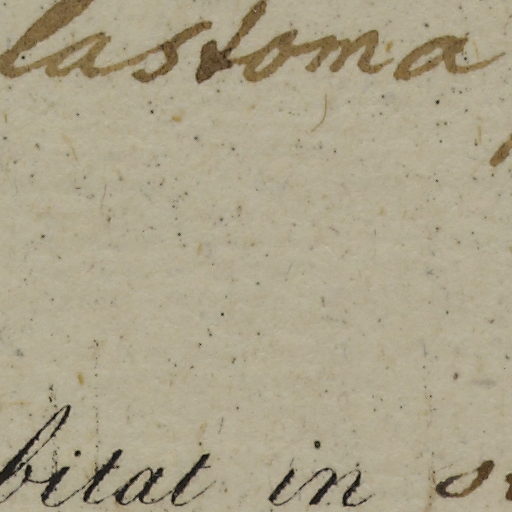 lastoma
bitat in